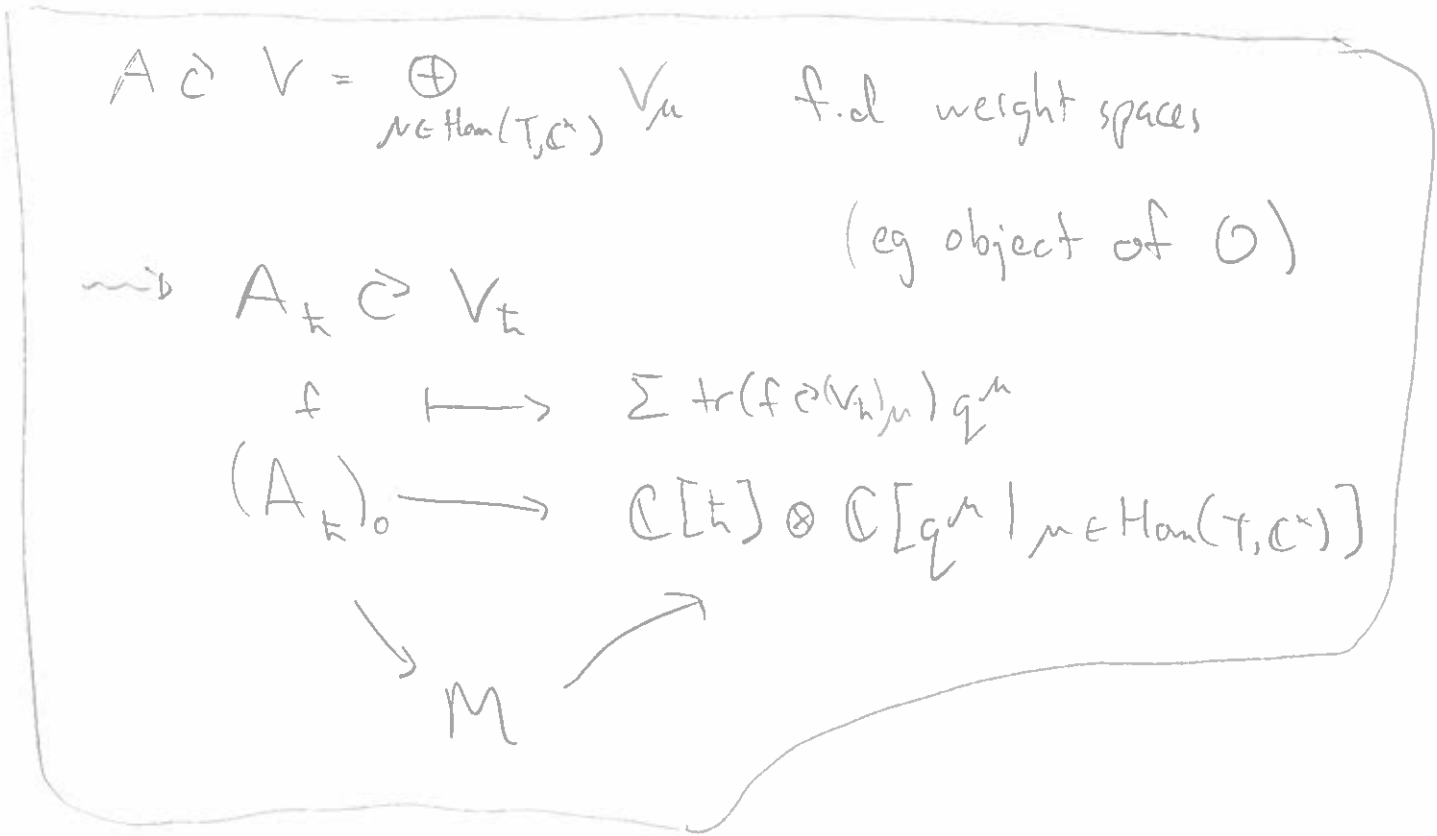 A ↻ V = ⊕_{μ∈Hom(T,ℂ^×)} V_μ f.d weight spaces
(eg object of O)
⇝ A_ħ ↻ V_ħ
f ↦ Σ tr(f ↻ (V_ħ)_μ) q^μ
(A_ħ)_0 → ℂ[ħ] ⊗ ℂ[q^μ | μ∈Hom(T,ℂ^×)]
↘ M ↗